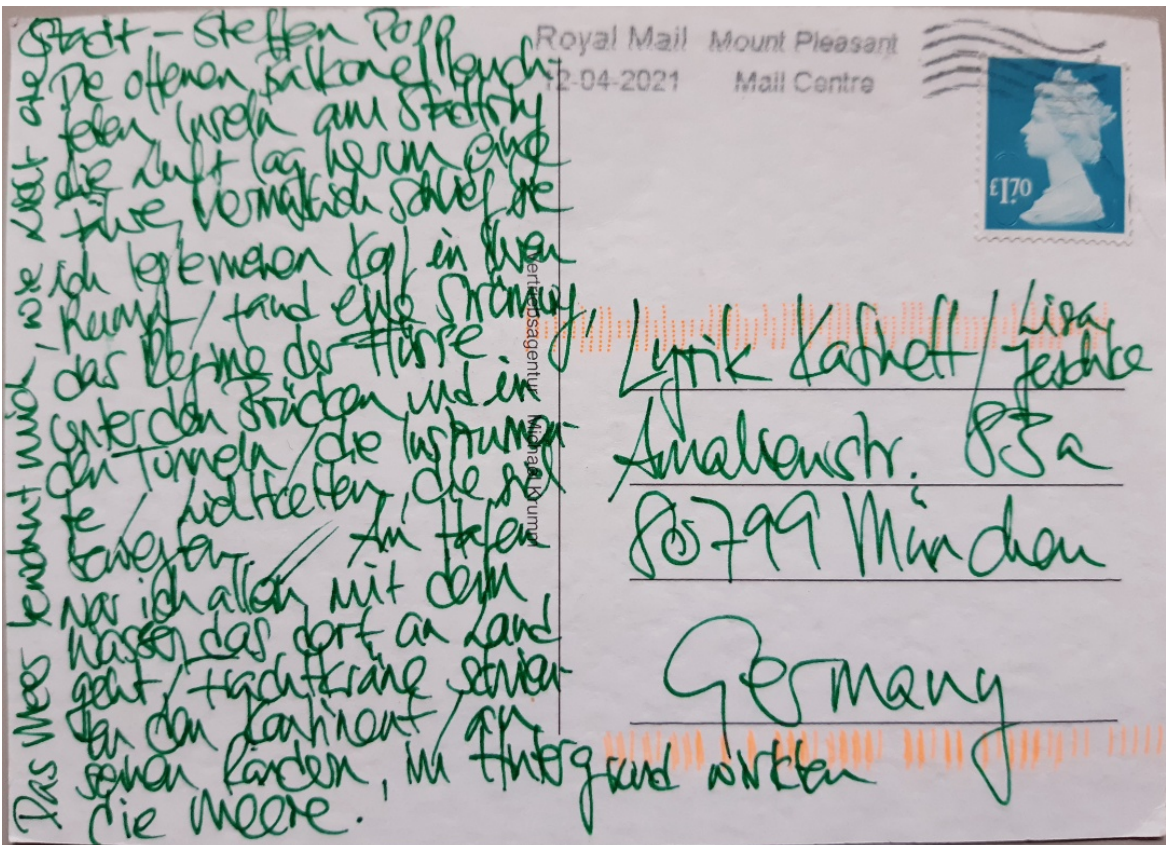 Stadt – Steffen Popp
Die offenen Balkone / leuch-
teten Inseln am Stadtring
die Luft lag herum eine
Führe, vermutlich schlief sie
ich legte meinen Kopf in ihren
Rumpf / fand eine Strömung,
das Regime der Flüsse
unter den Brücken, und in
den Tunneln / die Instrumen-
te / Lichtketten, die sie
bewegten. // Am Hafen
war ich allein, mit dem
Wasser, das dort an Land
geht, / Frachtkräne
den Kontinent / an
seinen Rändern, im Hintergrund wirkten
die Meere.
Das Meer
Royal Mail Mount Pleasant
12-04-2021 Mail Centre
£1.70
Vertriebsagentur Michael Krumpf
Lyrik Kabinett / Lisa
Jeschke
Amalienstr. 83a
80799 München
Germany